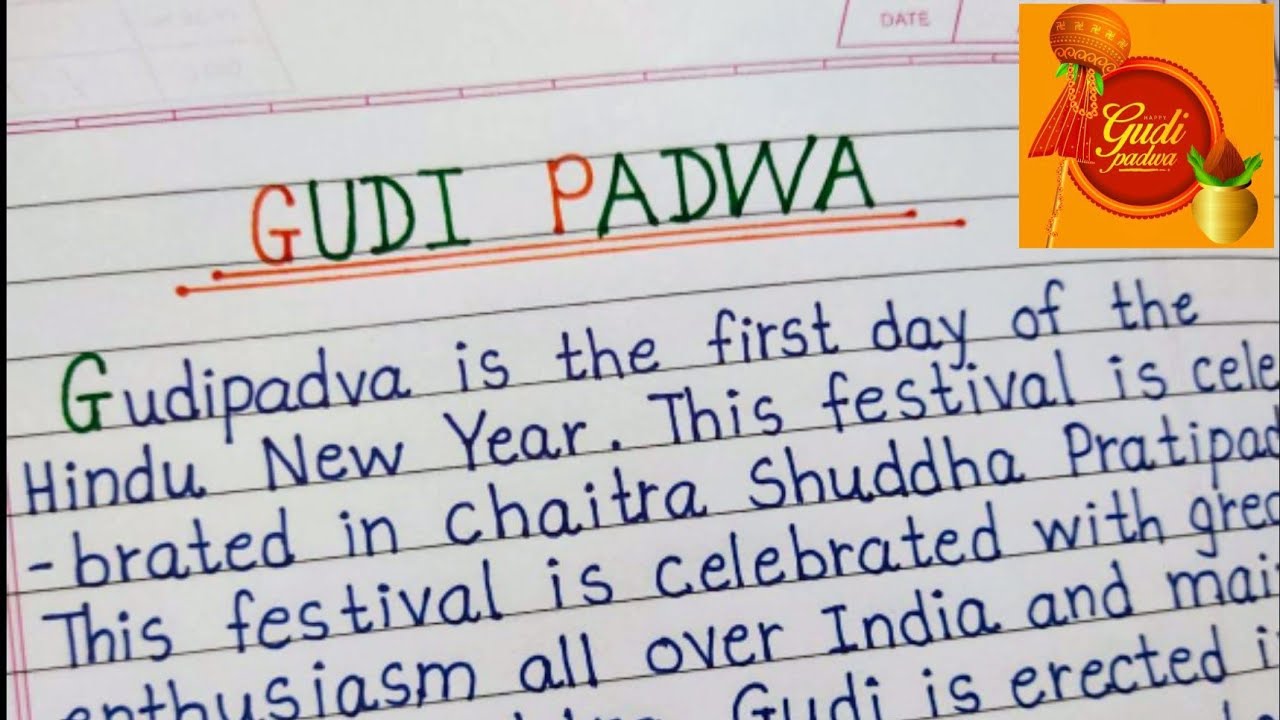 DATE
HAPPY
Gudi
padwa
GUDI PADWA
Gudipadva is the first day of the
Hindu New Year. This festival is cele
-brated in chaitra Shuddha Pratipad
This festival is celebrated with grea
enthusiasm all over India and mai
Gudi is erected i